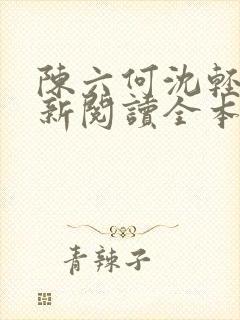 陳六何沈輕
新閱讀全本
青辣子